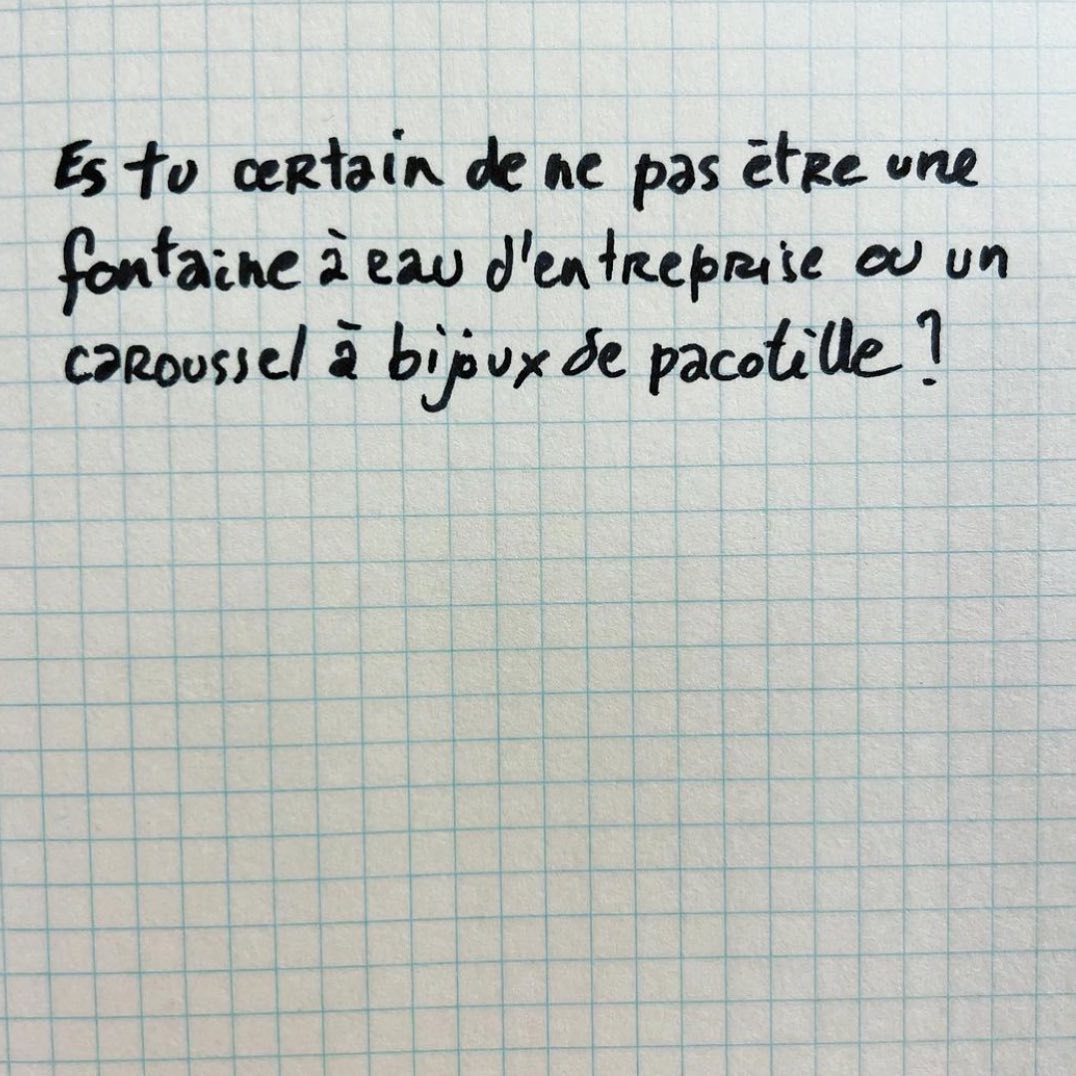 Es tu certain de ne pas être une
fontaine à eau d'entreprise ou un
caroussel à bijoux de pacotille ?